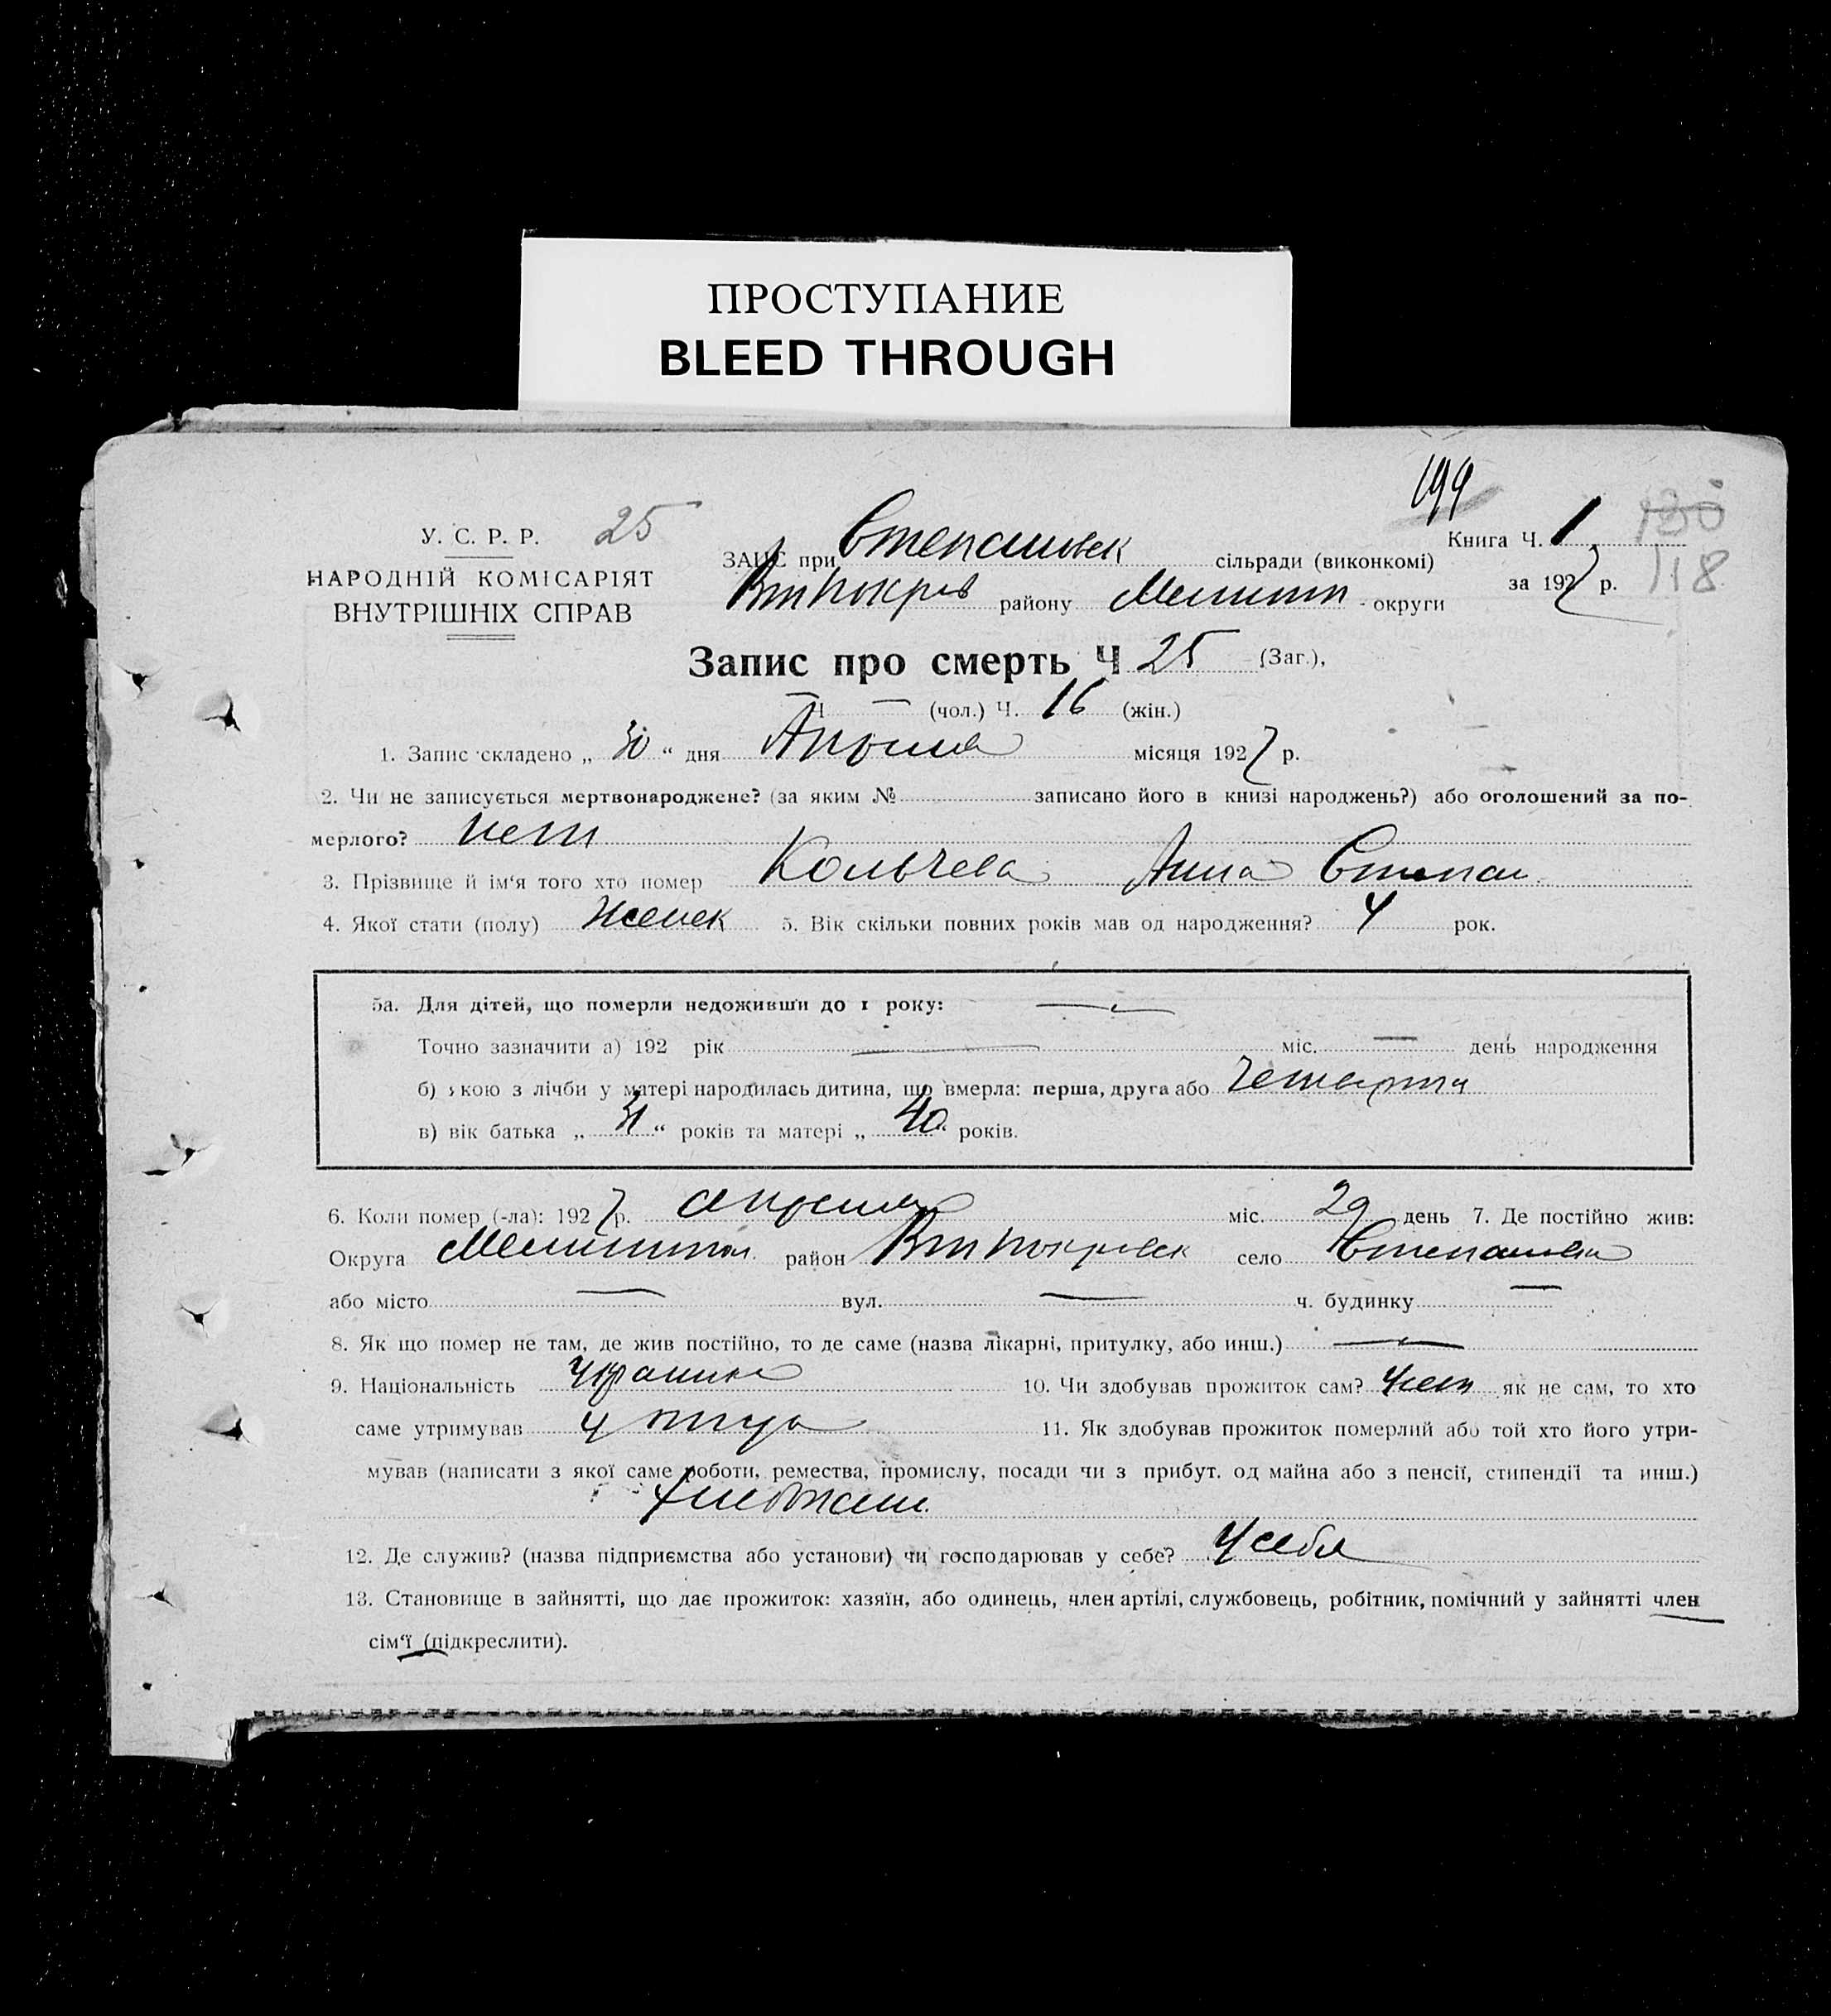 ПРОСТУПАНИЕ
BLEED THROUGH
199
У. С. Р. Р. 25
НАРОДНІЙ КОМІСАРІЯТ
ВНУТРІШНІХ СПРАВ
ЗАГС при Степановск сільради (виконкомі)
Книга Ч. 1 130
ВтПокров району Мелитоп округи
за 1927 р. 118
Запис про смерть Ч 25 (Заг.),
Ч — (чол.) Ч. 16 (жін.)
1. Запис складено „ 30 “ дня Апреля місяця 1927 р.
2. Чи не записується мертвонароджене? (за яким № записано його в книзі народжень?) або оголошений за по-
мерлого? нет
3. Прізвище й ім‘я того хто помер Кольчева Анна Степан.
4. Якої стати (полу) Женск 5. Вік скільки повних років мав од народження? 4 рок.
5а. Для дітей, що померли недоживши до 1 року: —
Точно зазначити а) 192 рік — міс. — день народження
б) якою з лічби у матері народилась дитина, що вмерла: перша, друга або четверта
в) вік батька „ “ років та матері „ 40 “ років.
6. Коли помер (-ла): 1927 р. апреля міс. 29 день 7. Де постійно жив:
Округа Мелитопол. район ВтПокровск село Степановка
або місто — вул. — ч. будинку —
8. Як що помер не там, де жив постійно, то де саме (назва лікарні, притулку, або инш.) —
9. Національність 10. Чи здобував прожиток сам? нет як не сам, то хто
саме утримував у отца 11. Як здобував прожиток померлий або той хто його утри-
мував (написати з якої саме роботи, ремества, промислу, посади чи з прибут. од майна або з пенсії, стипендії та инш.)
хлебопаш.
12. Де служив? (назва підприємства або установи) чи господарював у себе? у себя
13. Становище в зайнятті, що дає прожиток: хазяїн, або одинець, член артілі, службовець, робітник, помічний у зайнятті член
сім‘ї (підкреслити).